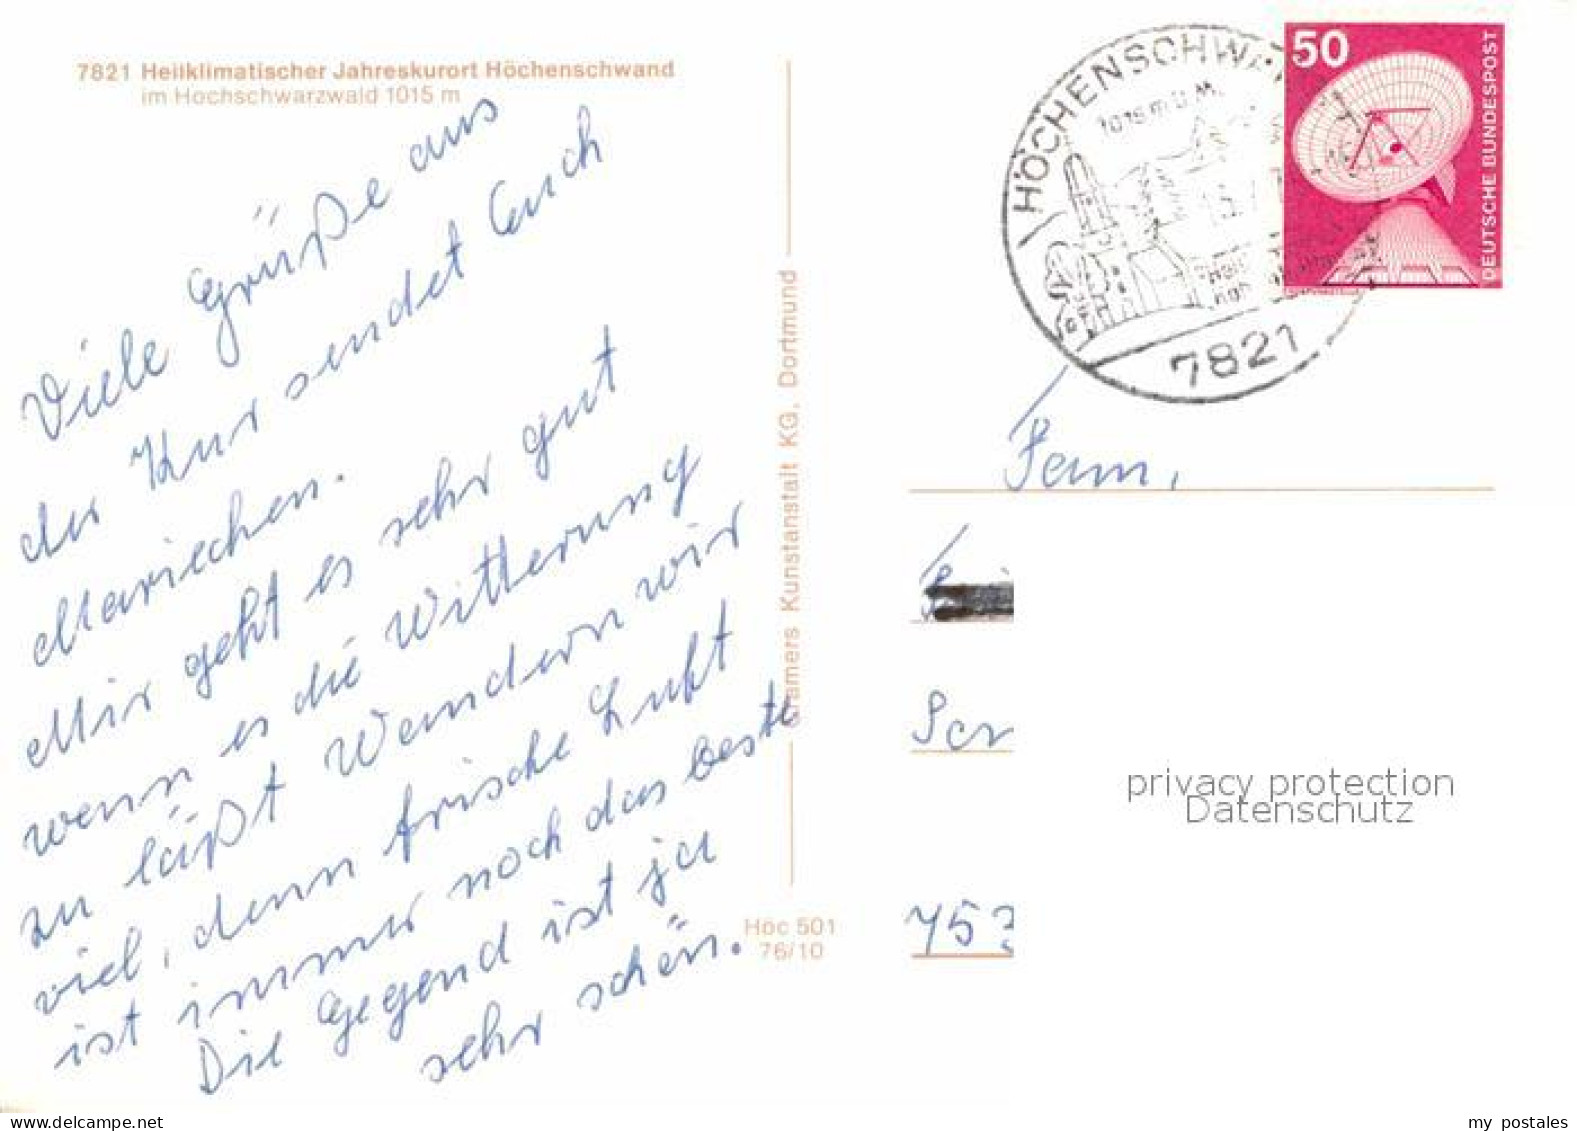 7821 Heilklimatischer Jahreskurort Höchenschwand
im Hochschwarzwald 1015 m
Viele Grüße aus
der Kur sendet Euch
Mariechen.
Mir geht es sehr gut
wenn es die Witterung
zu läßt Wandern wir
viel, denn frische Luft
ist immer noch das beste
Die Gegend ist ja
sehr schön.
Cramers Kunstanstalt KG, Dortmund
Höc 501
76/10
HÖCHENSCHWA
1015 m ü. M.
7821
50
DEUTSCHE BUNDESPOST
Fam,
753
privacy protection
Datenschutz
my postales